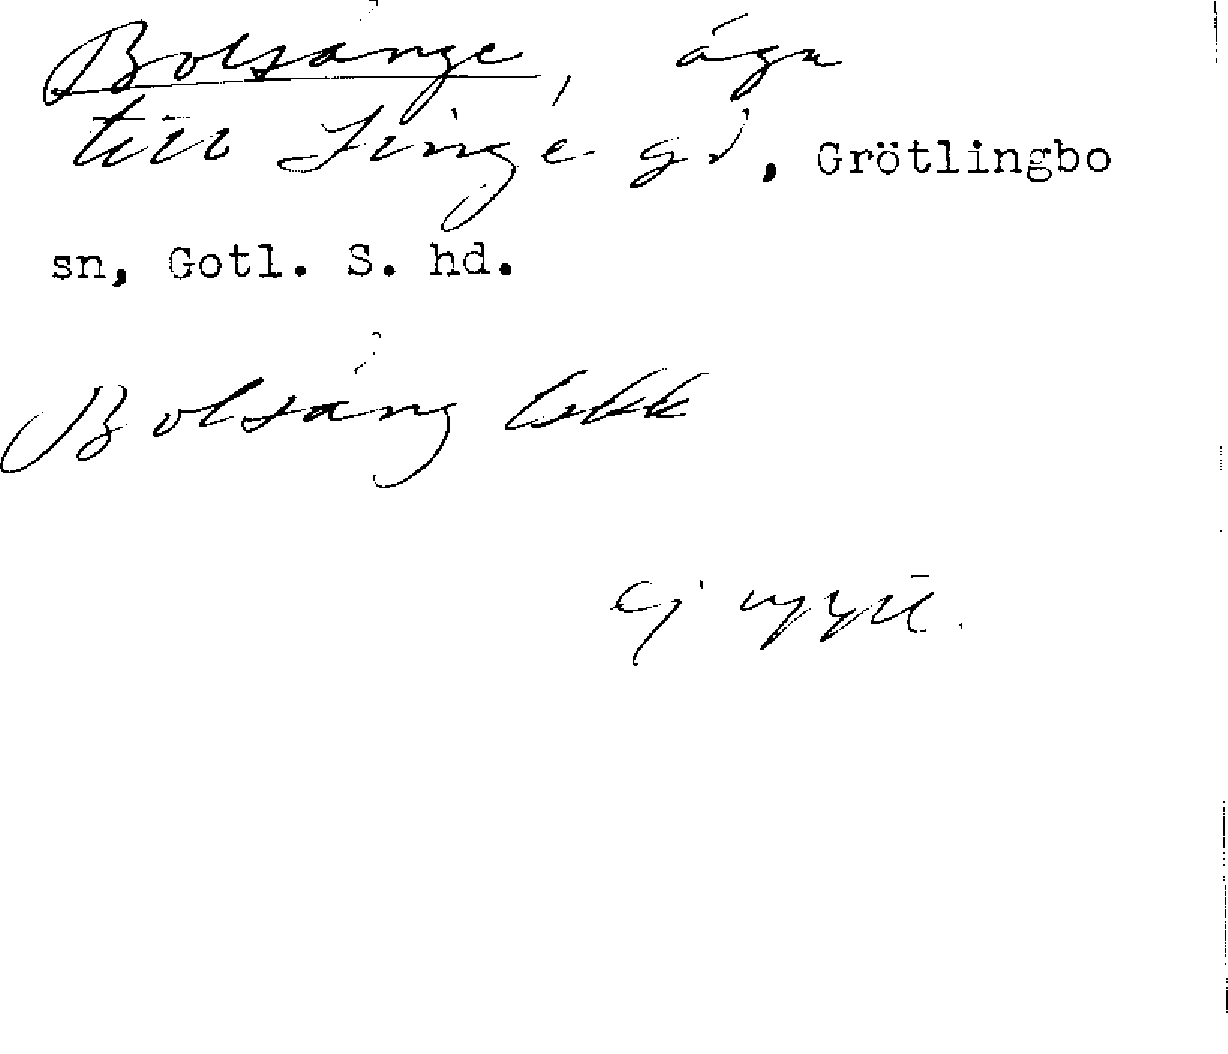 Bolsänge, äga
till gd, Grötlingbo
sn, Gotl. S. hd.
Bolsäng lskk
ej uppt.